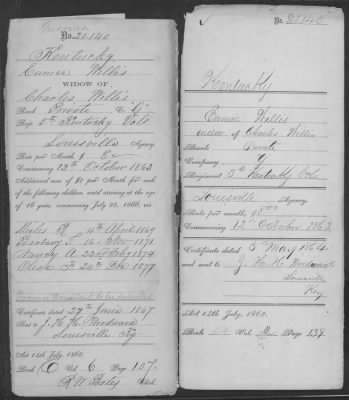 No. 21.140
Kentucky
Eunice Willis
WIDOW OF
Charles Willis
Rank Private Co. G
Regt. 5th Kentucky Vols
Louisville Agency
Rate per Month, 8
Commencing 12th October 1862
Additional sum of $2 per Month for each
of the following children, until arriving at the age
of 16 years, commencing July 25, 1866, viz:
4th April 1869
16 Nov 1871
22nd Feby 1874
24th Dec 1877
Certificate dated 27th June 1867
Sent to J. H. H. Woodward
Louisville Ky
Act 14th July, 1862.
Book O Vol. 6 Page 107
R W Bates Clerk.
No. 21.140
Kentucky
Eunice Willis
widow of Charles Willis
Rank Private
Company G
Regiment 5th Kentucky Vols
Louisville Agency
Rate per month, $8.00
Commencing 12th October 1862
Certificate dated 5th May 1864
and sent to J. H. H. Woodward
Louisville
Ky.
Act 14th July, 1862.
Book Vol. Page 139